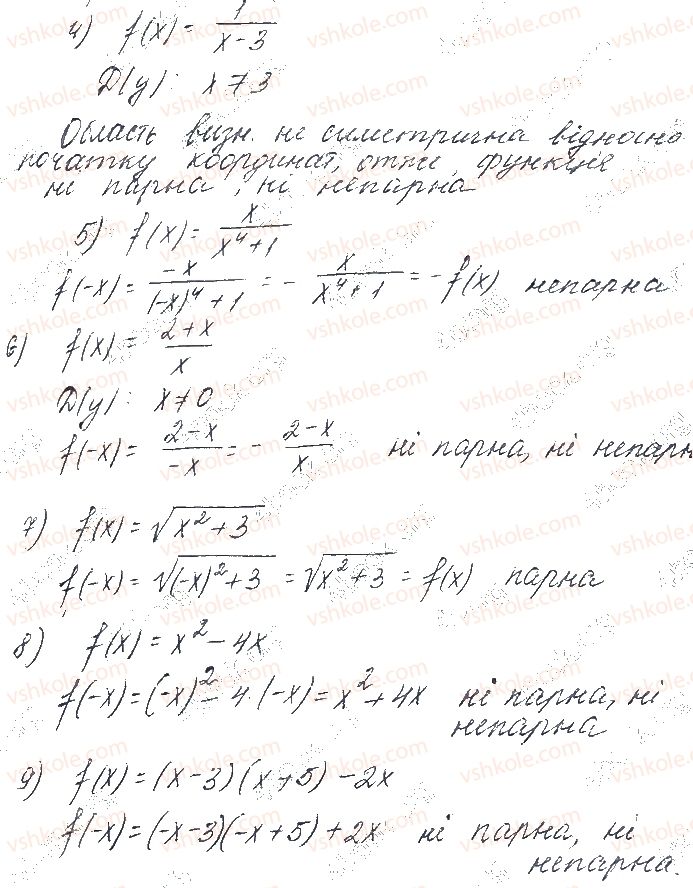 4) f(x) = 1/(x-3)
D(y): x ≠ 3
Область визн. не симетрична відносно
початку координат, отже, функція
ні парна, ні непарна
5) f(x) = x/(x⁴+1)
f(-x) = -x/((-x)⁴+1) = - x/(x⁴+1) = -f(x) непарна
6) f(x) = (2+x)/x
D(y): x ≠ 0
f(-x) = (2-x)/(-x) = - (2-x)/x ні парна, ні непарн
7) f(x) = √(x²+3)
f(-x) = √((-x)²+3) = √(x²+3) = f(x) парна
8) f(x) = x² - 4x
f(-x) = (-x)² - 4·(-x) = x² + 4x ні парна, ні
непарна
9) f(x) = (x-3)(x+5) - 2x
f(-x) = (-x-3)(-x+5) + 2x ні парна, ні
непарна.